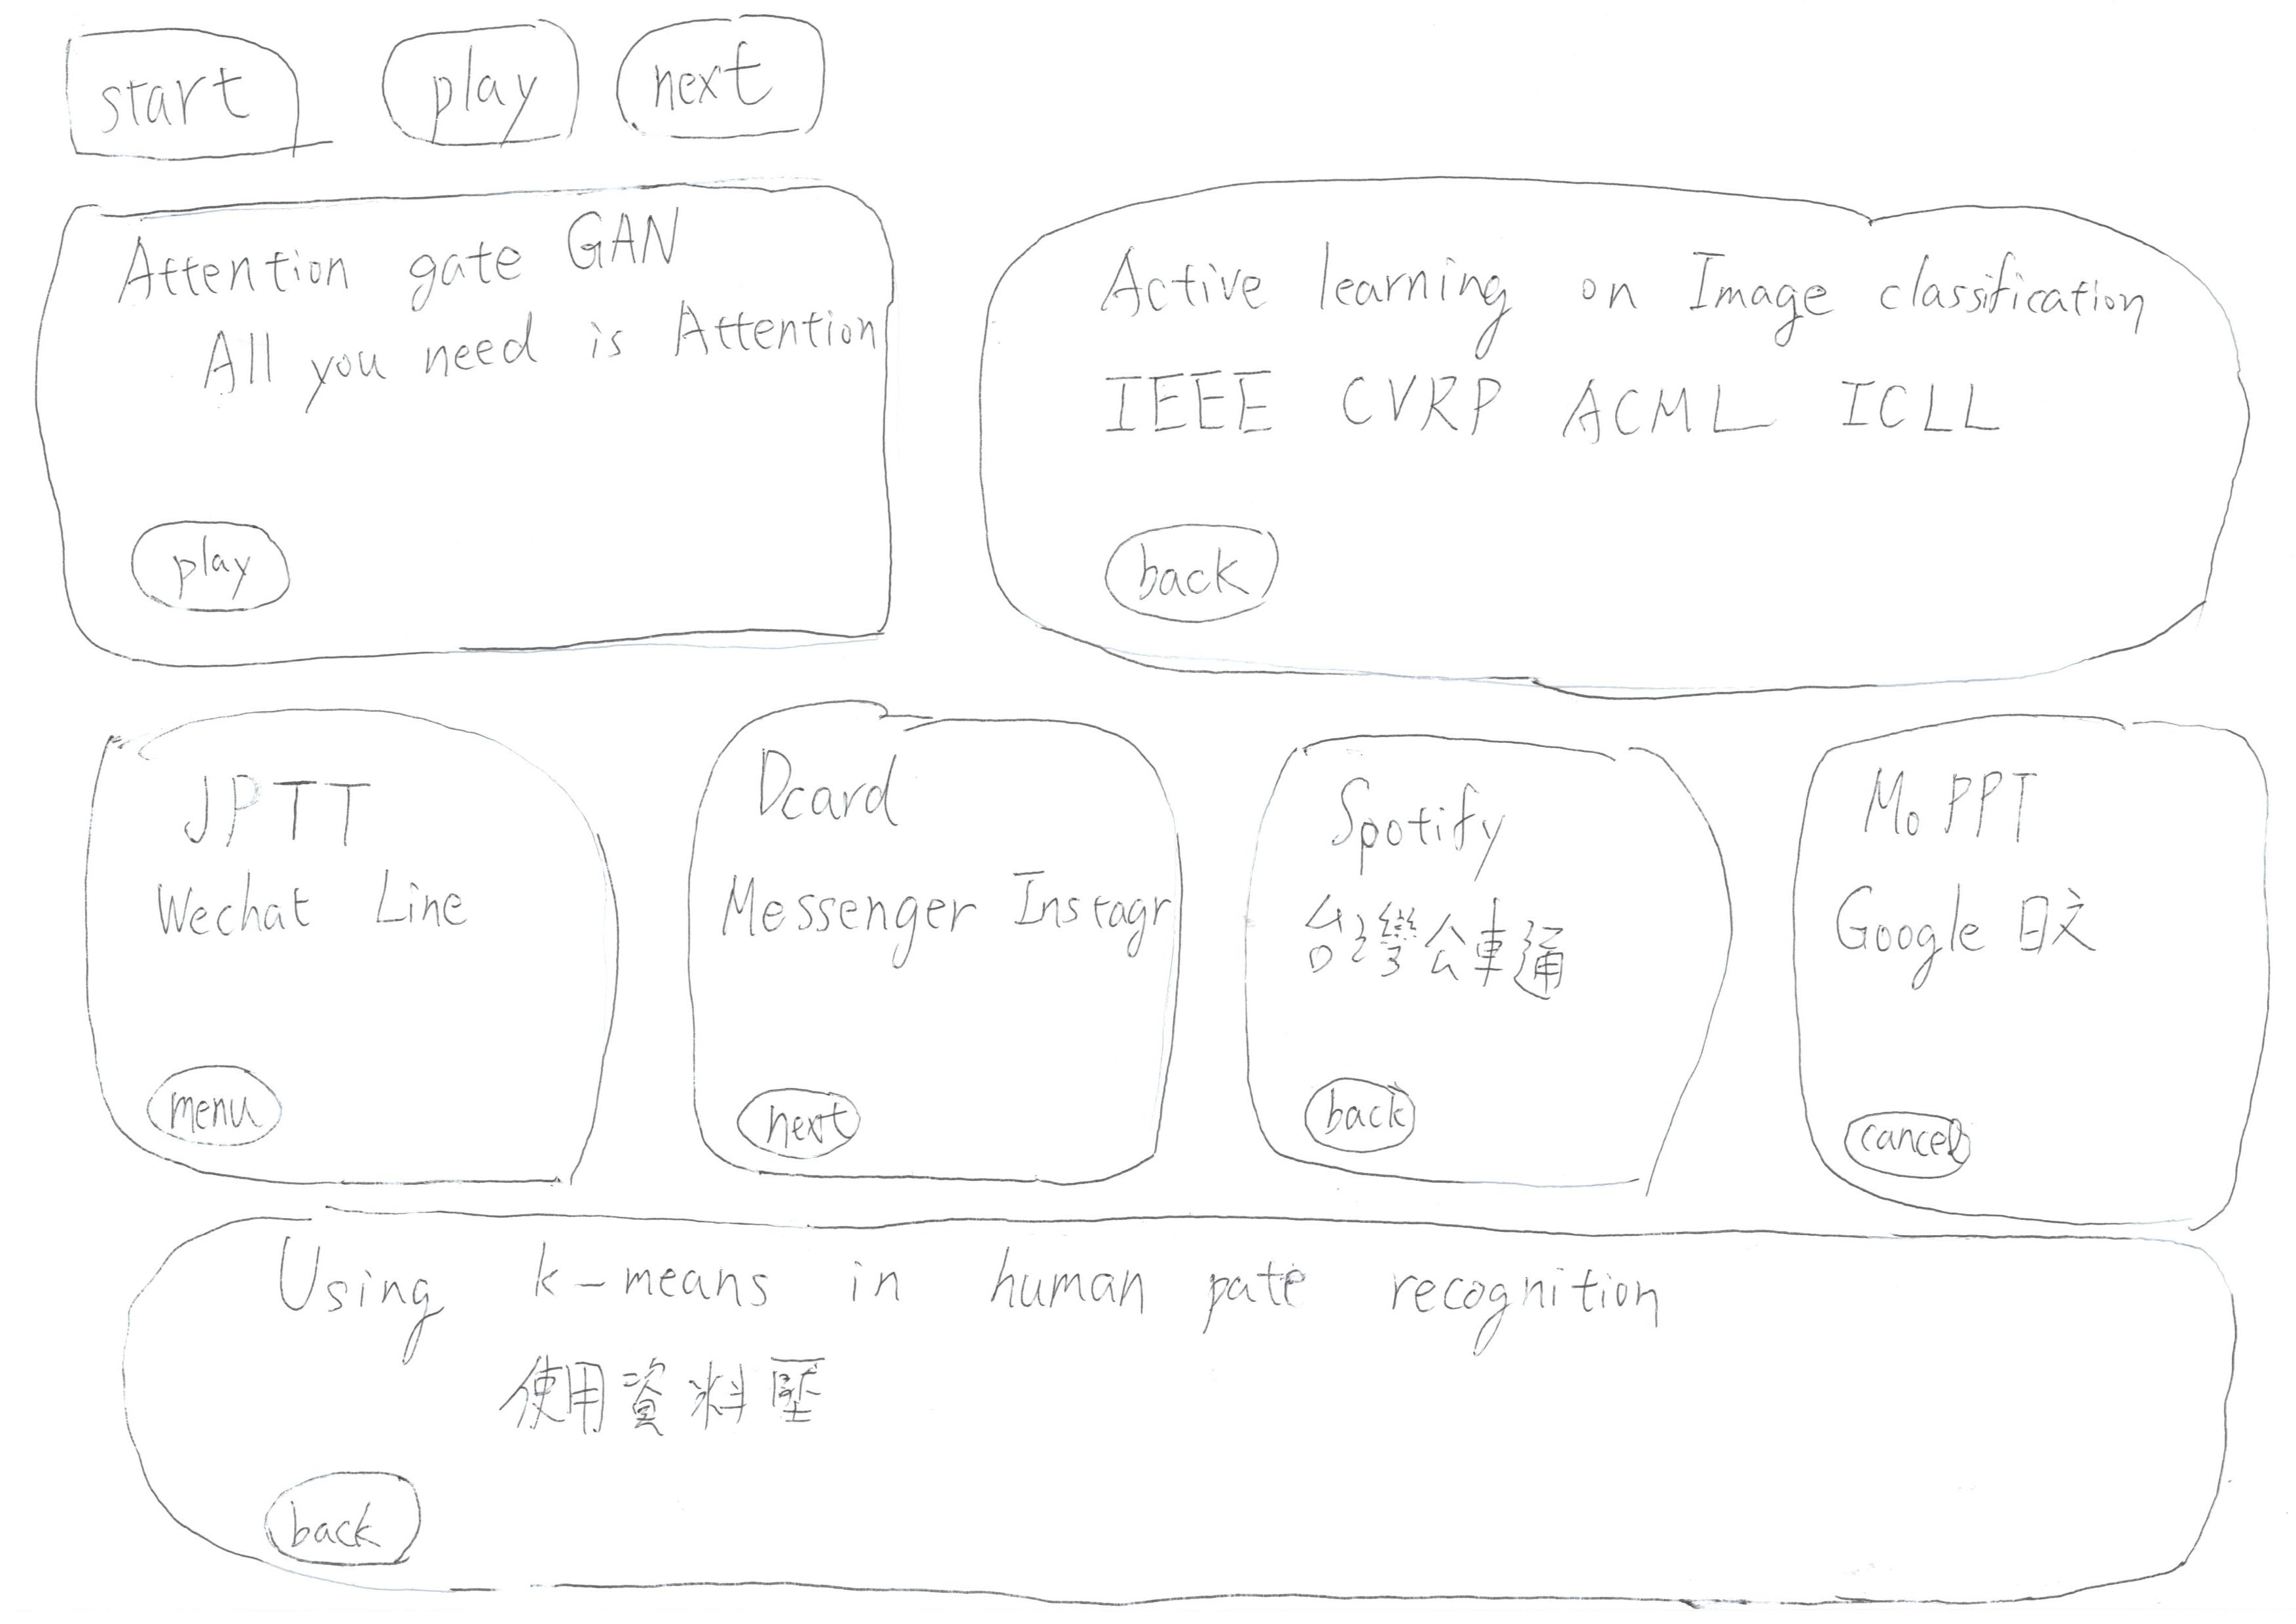 start play next
Attention gate GAN
All you need is Attention
play
Active learning on Image classification
IEEE CVRP ACML ICLL
back
JPTT
Wechat Line
menu
Dcard
Messenger Instagr
next
Spotify
台灣公車通
back
Mo PPT
Google 日文
cancel
Using k-means in human pate recognition
使用資料壓
back